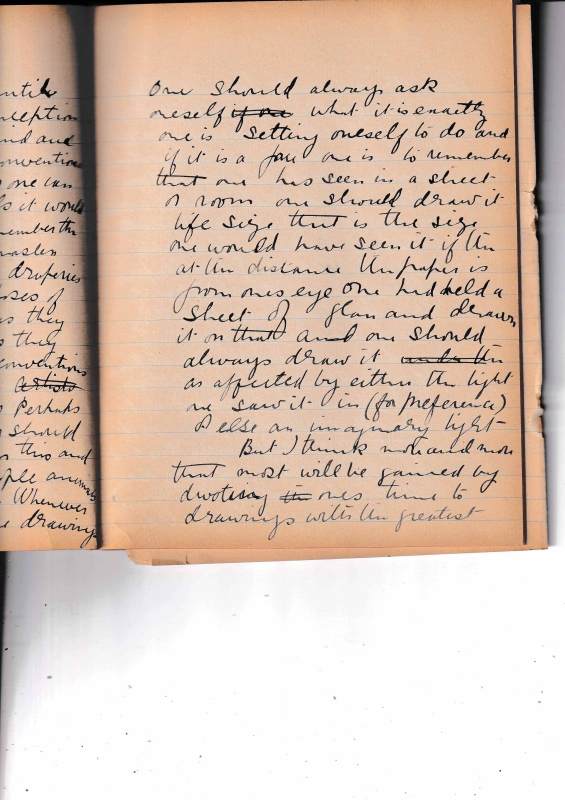 ntile
nception
ind and
onvention
one can
s it would
member the
master
driperies
oses of
as they
s they
conventions
artists
Perhaps
should
n this and
ople animals
Whenever
e drawings
One should always ask
oneself if one what it is exactly
one is setting oneself to do and
if it is a face one is to remember
that one has seen in a street
or room one should draw it
life size that is the size
one would have seen it if the
at the distance the paper is
from ones eye one had held a
sheet of glass and drawn
it on that and one should
always draw it under the
as affected by either the light
one saw it in (for preference)
or else an imaginary light
But I think more and more
that most will be gained by
devoting the ones time to
drawings with the greatest